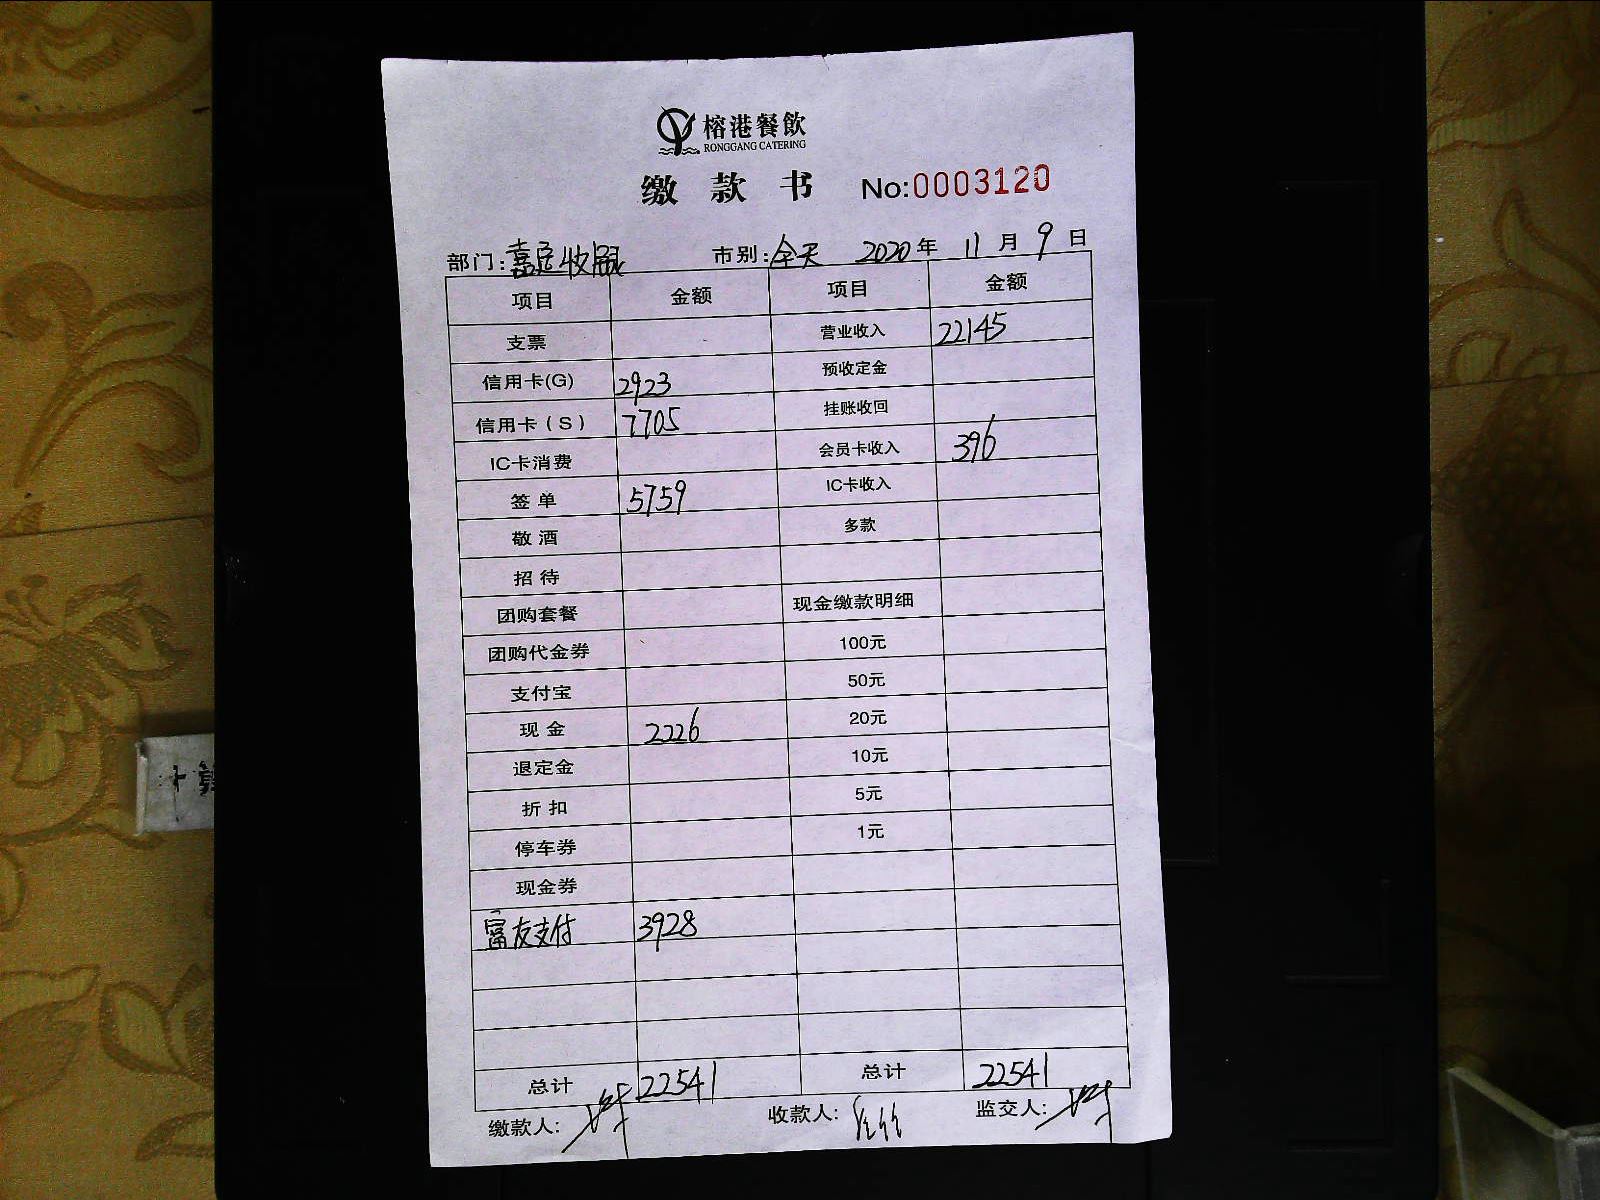 榕港餐飲
RONGGANG CATERING
缴款书 No:0003120
部门: 市别:全天 2020年 11月 9日
项目 金额 项目 金额
支票 营业收入 22145
信用卡(G) 2923 预收定金
信用卡(S) 7705 挂账收回
IC卡消费 会员卡收入 396
签单 5759 IC卡收入
敬酒 多款
招待
团购套餐 现金缴款明细
团购代金券 100元
支付宝 50元
现金 2226 20元
退定金 10元
折扣 5元
停车券 1元
现金券
富友支付 3928
总计 22541 总计 22541
缴款人: 收款人: 监交人: